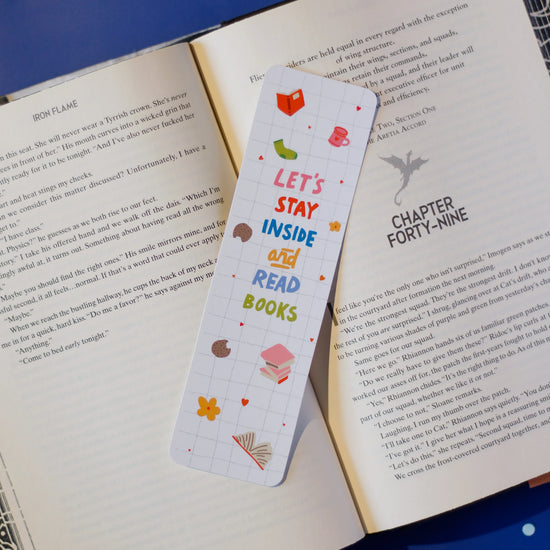 IRON FLAME
in this seat. She will never wear a Tyrrish crown. She's never
ees in front of her." His mouth curves into a wicked grin that
ntly ready for it to be tonight. "And I've also never fucked her
art and heat stings my cheeks.
can we consider this matter discussed? Unfortunately, I have a
get to."
"I have class."
Physics?" he guesses as we both rise to our feet.
day." I take his offered hand and we walk off the dais. "Which I'm
ingly awful at, it turns out. Something about having read all the wrong
Maybe you should find the right ones." His smile mirrors mine, and for
second, it all feels...normal. If that's a word that could ever apply
"Maybe."
When we reach the bustling hallway, he cups the back of my neck
me in for a quick, hard kiss. "Do me a favor?" he says against my
"Anything."
"Come to bed early tonight."
LET'S
STAY
INSIDE
and
READ
BOOKS
Fliers' leaders are held equal in every regard with the exception
of wing structure.
maintain their wings, sections, and squads,
retain their commands,
by a squad, and their leader will
executive officer for unit
and efficiency.
Two, Section One
The Aretia Accord
CHAPTER
FORTY-NINE
feel like you're the only one who isn't surprised," Imogen says as we
in the courtyard after formation the next morning.
"We're the strongest squad. They're the strongest drift. I don't know
the rest of you are surprised." I shrug, glancing over at Cat's drift, who
to be turning various shades of purple and green from yesterday's
Same goes for our squad.
"Here we go." Rhiannon hands six of us familiar green patches.
"Do we really have to give them these?" Ridoc's lip curls at
worked our asses off for, the patch the first-years fought to hold
"Yes," Rhiannon chides. "It's the right thing to do. As of this
part of our squad, whether we like it or not."
"I choose to not," Sloane remarks.
Laughing, I run my thumb over the patch.
"I'll take one to Cat," Rhiannon says quietly. "You don't
"I've got it." I give her what I hope is a reassuring
"Let's do this," she repeats. "Second squad, time to
We cross the frost-covered courtyard together, and